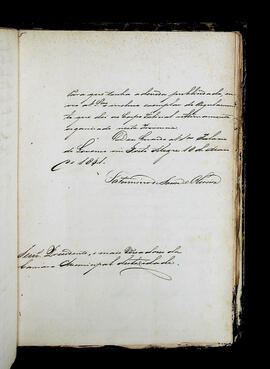 Para que tenha a devida publicidade, en-
vio a Vmces o incluso exemplar do Regulamento
que dei ao Corpo Policial ultimamente
organisado nesta Provincia.
Deos Guarde a Vmces Palacio
do Governo em Porto Alegre 10 de
de 1841.
Saturnino de Souza e Oliveira
Snres Presidente, e mais Vereadores da
Camara Municipal desta cidade.